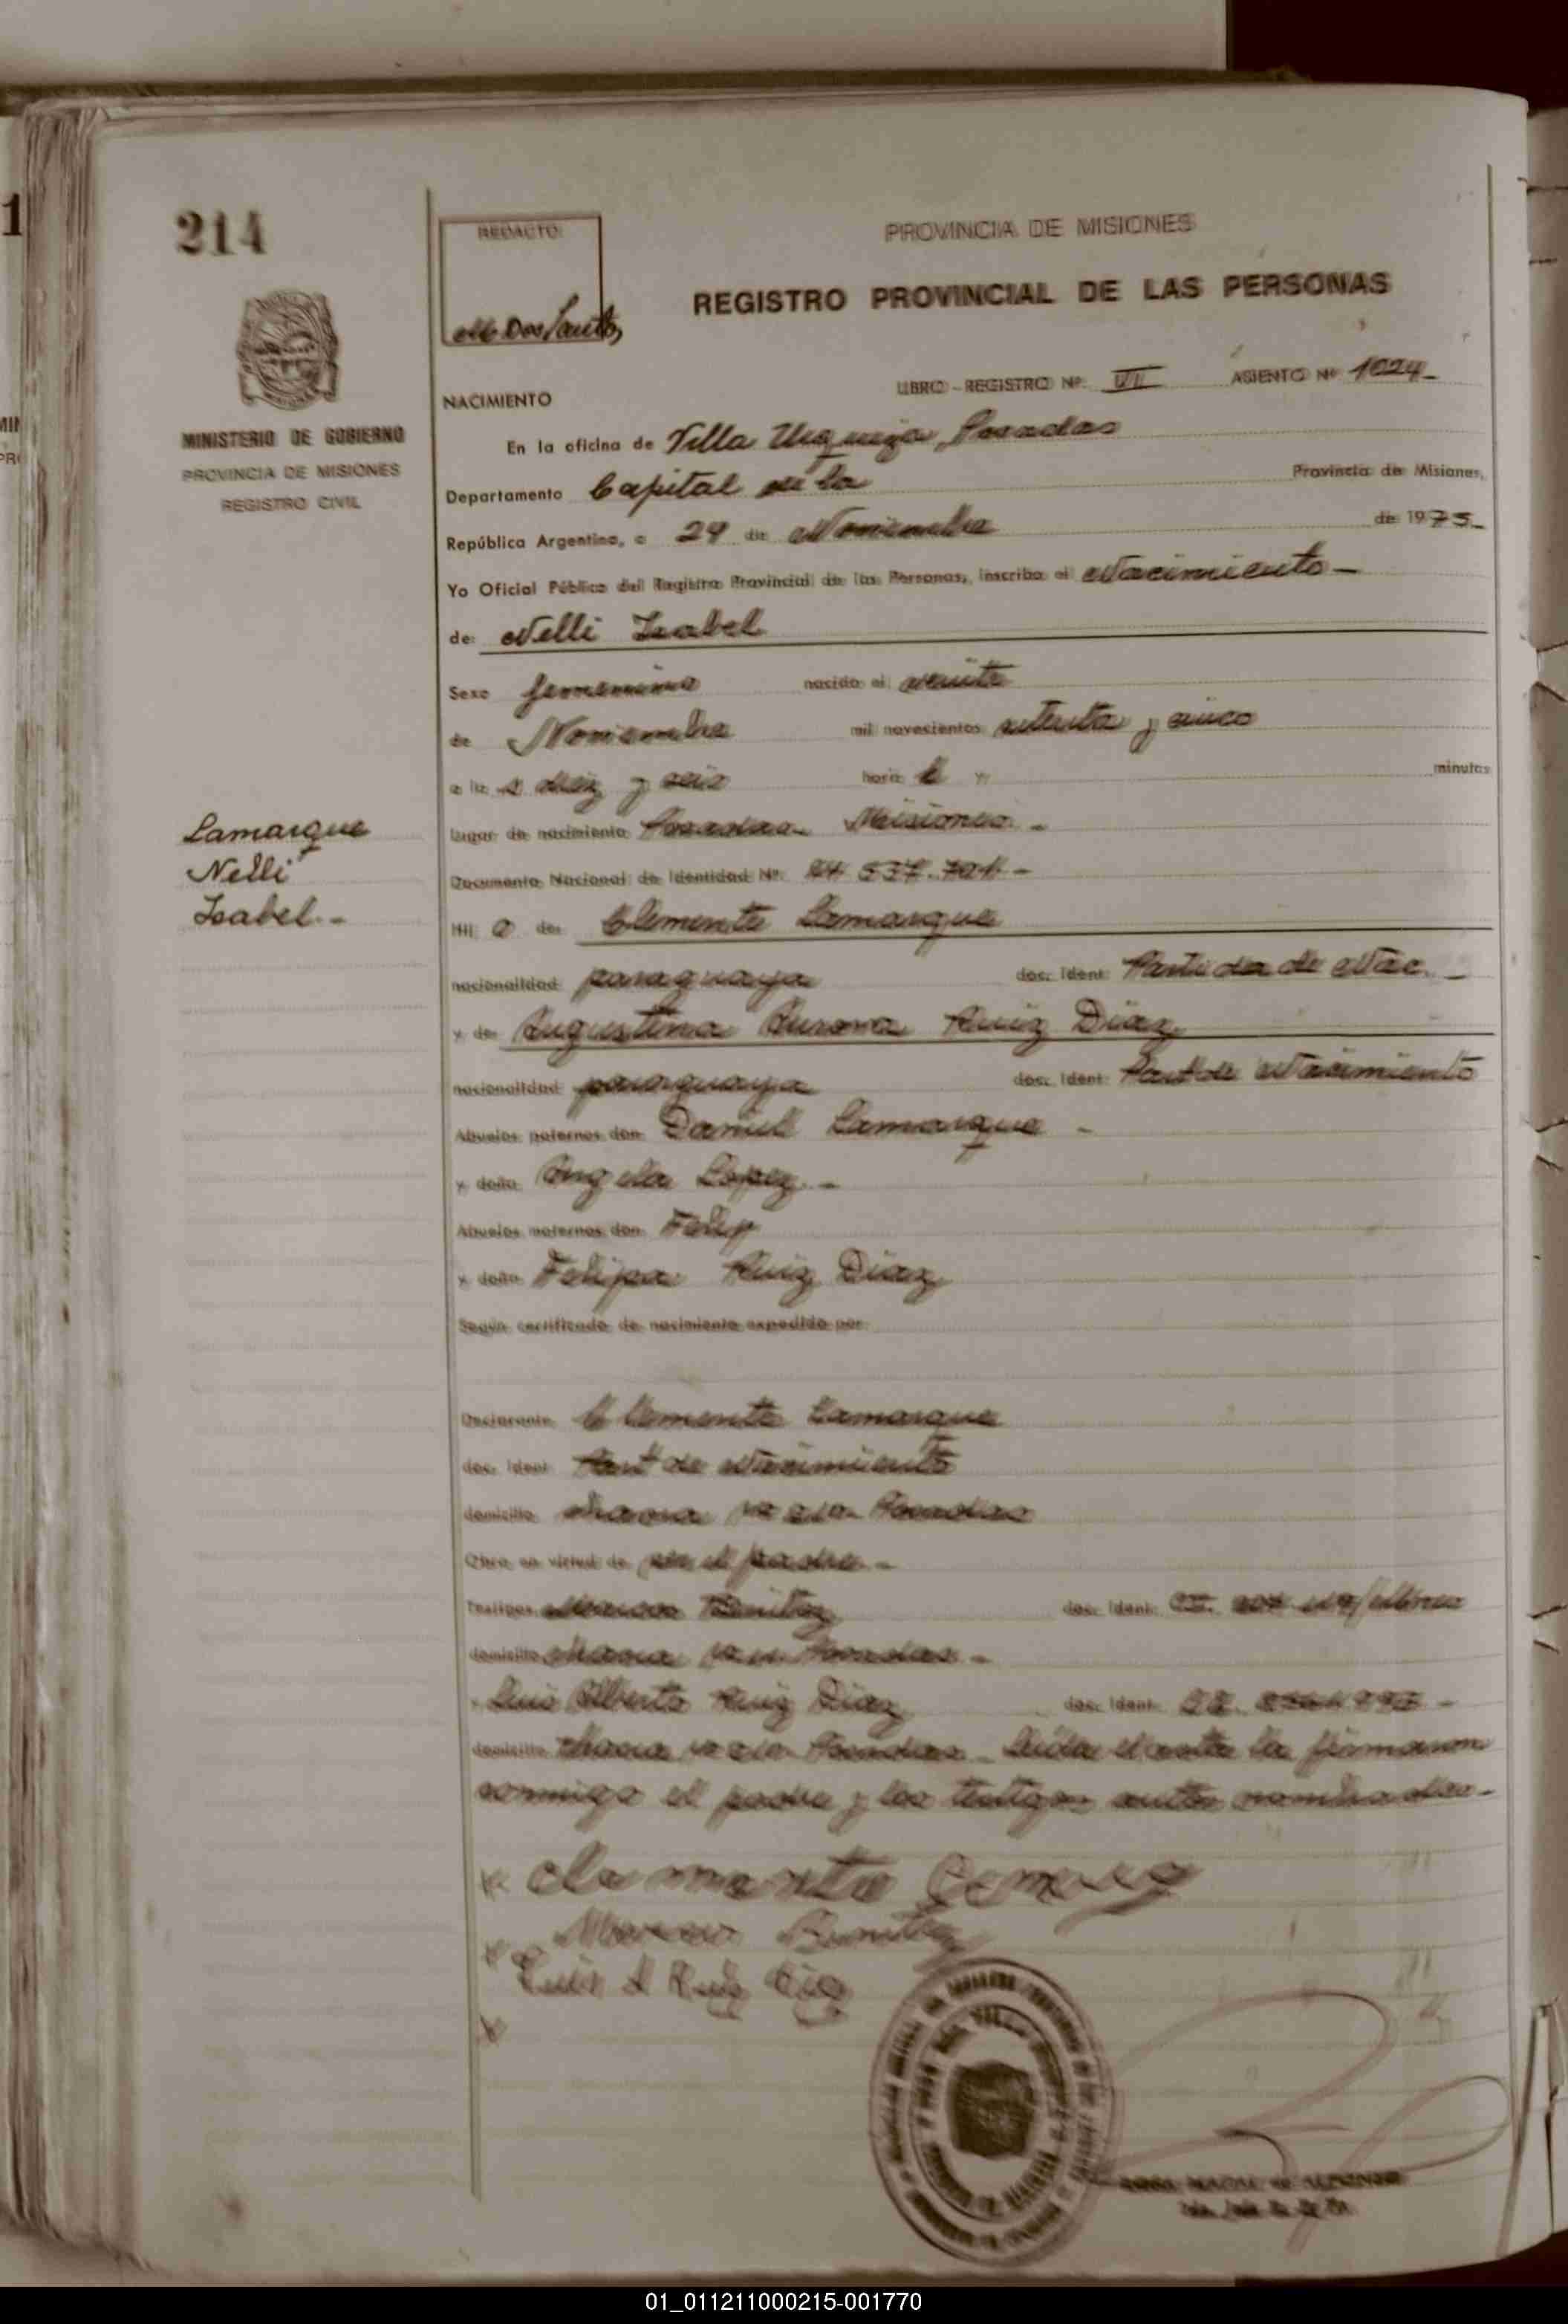 214
REDACTO
PROVINCIA DE MISIONES
REGISTRO PROVINCIAL DE LAS PERSONAS
MINISTERIO DE GOBIERNO
PROVINCIA DE MISIONES
REGISTRO CIVIL
Dos Santos
LIBRO - REGISTRO Nº VII ASIENTO Nº 1024_
NACIMIENTO
En la oficina de Villa Urquiza, Posadas
Departamento Capital de la Provincia de Misiones,
República Argentina, a 29 de Noviembre de 1975_
Yo Oficial Público del Registro Provincial de las Personas, inscribo el Nacimiento -
de: Nelli Isabel
Sexo femenino nacido el veinte
de Noviembre mil novecientos setenta y cinco
a la s diez y seis hora y minutos
Lamarque
Nelli
Isabel.-
lugar de nacimiento Posadas Misiones. -
Documento Nacional de Identidad Nº
Hij a de: Clemente Lamarque
nacionalidad paraguaya doc. Ident. Partida de Nac. -
y de Augustina Aurora Ruiz Diaz
nacionalidad paraguaya doc. Ident. Part de Nacimiento
Abuelos paternos don Daniel Lamarque -
y doña Angela Lopez. -
Abuelos maternos don Felip
y doña Felipa Ruiz Diaz
Según certificado de nacimiento expedido por:
Declarante Clemente Lamarque
doc. Ident. Part de Nacimiento
domicilio Posadas
Obra en virtud de ser el padre. -
Testigos Benitez doc. Ident.
domicilio Posadas -
y Luis Alberto Ruiz Diaz doc. Ident.
domicilio Posadas - Leida el acta la firmaron
conmigo el padre y los testigos antes nombrados.-
Benitez
Luis A Ruiz Diaz
01_011211000215-001770